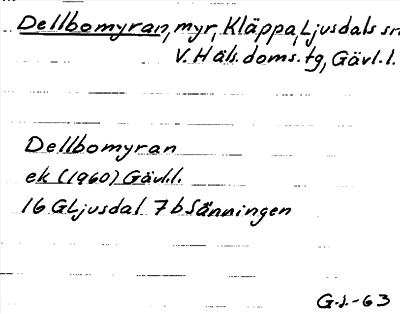 Dellbomyran, myr, Kläppa, Ljusdals sn
V. Häls. doms. tg, Gävl. l.
Dellbomyran
ek (1960) Gävl.l.
16 G Ljusdal 7b Sänningen
G.J.-63